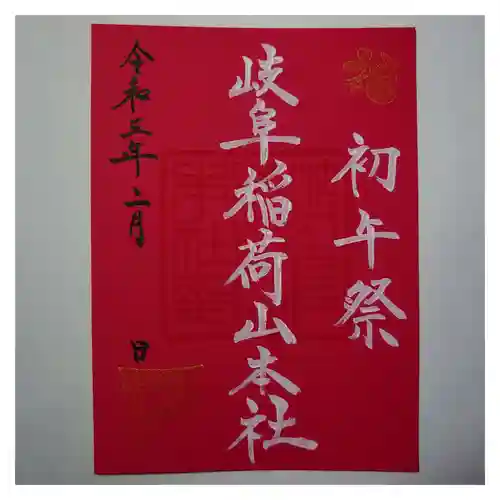 初午祭
岐阜稲荷山本社
令和三年二月 日